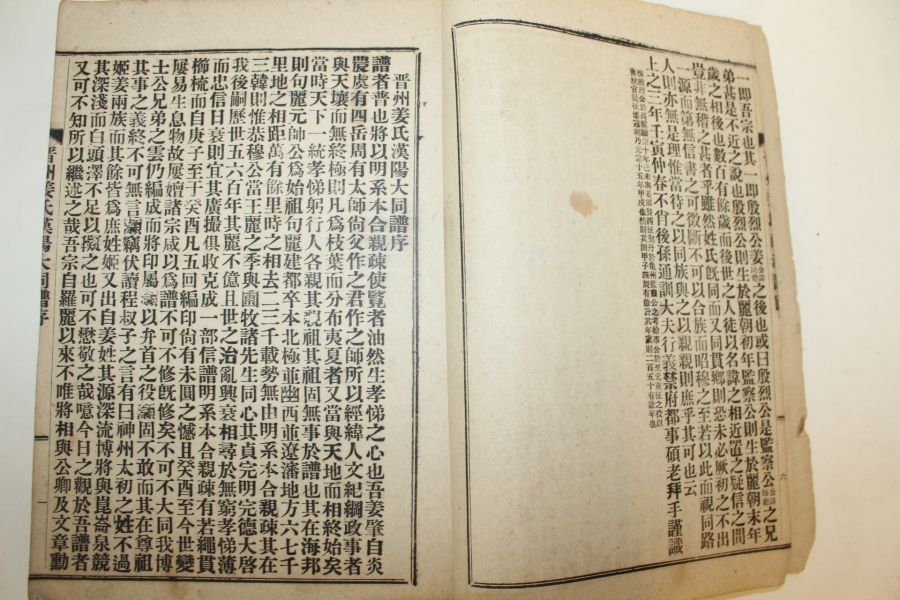 一即吾宗也其一即殷烈公姜之後也或曰殷烈公是監察公之兄
弟甚是不近之說也殷烈公則生於麗朝初年監察公則生於麗朝末年
歲之相後也數百有餘歲而後世之人徒以名諱之相近置之疑信之間
豈非無稽之甚者乎雖然姓氏旣同而又同貫鄉則恐未必厥初之不出
一源而第無信書之可徵斷不可以合族而昭穆之至若以此而視同路
人則亦無是理惟當待之以同族與之以親親則庶乎其可也云
上之三年壬寅仲春不肖後孫通訓大夫行義禁府都事碩老拜手謹識
六
晋州姜氏漢陽大同譜序
譜者普也將以明系本合親疎使覽者油然生孝悌之心也吾姜肇自炎
農處有四岳周有太師尙父作之君作之師所以經緯人文紀綱政事者
與天壤而無終極則凡爲枝葉而分布夷夏者又當與天地而相終始矣
當時天下一統孝悌躬行人各親其親祖其祖固無事於譜也其在海邦
則句麗元帥公爲始祖句麗建都卒本北極並幽西並遼瀋地方六七千
里地之相距萬有餘里時之相去二三千載勢無由明系本合親疎其在
三韓則惟恭穆公當王麗之季與圃牧諸先生同心其貞完明完德大啓
我後嗣歷世五六百年其麗不億且世之治亂興衰相尋於無窮孝悌薄
而忠信日衰則宜其廣搜俱收克成一部信譜明系本合親疎有若繩貫
櫛梳而自庚子至于癸酉凡五回編印尙有未圓之憾且癸酉至今世變
屢易生息物故屢嬗諸宗咸以爲譜不可不修旣修矣不可不大同我博
士公兄弟之雲仍編成而將印屬灝以弁首之役灝固不敢而其在尊祖
其事之義終不可無言灝竊伏讀程叔子之言有曰神州太初之姓不過
姬姜兩族而其餘皆爲庶姓姬又出自姜姓其源深流博將與崑崙泉競
其深淺而白頭澤不足以擬之也可不愁敬之哉噫今日之觀於吾譜者
又可不知所以繼述之哉吾宗自羅麗以來不唯將相與公卿及文章勳
晋州姜氏漢陽大同譜序
一